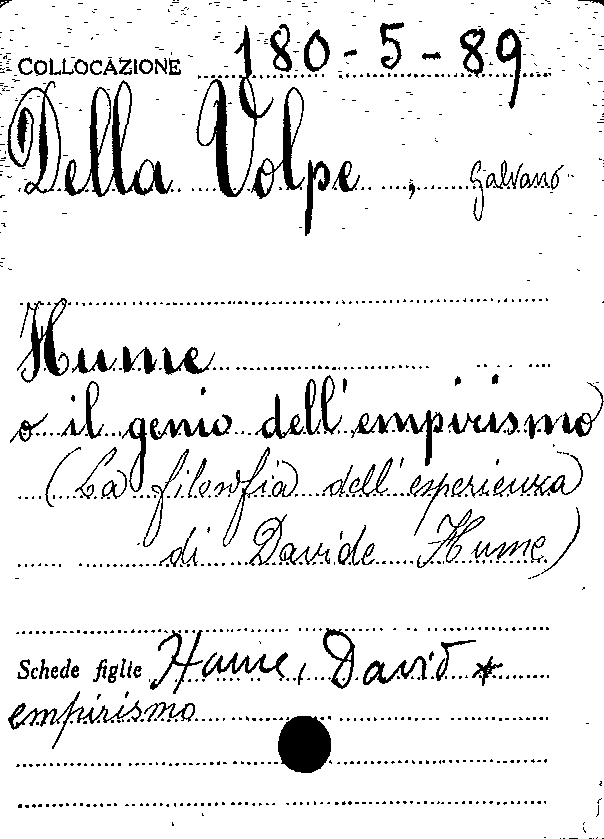 COLLOCAZIONE 180-5-89
Della Volpe, Galvano
Hume
o il genio dell'empirismo
(La filosofia dell'esperienza
di Davide Hume)
Schede figlie Hume, David *
empirismo